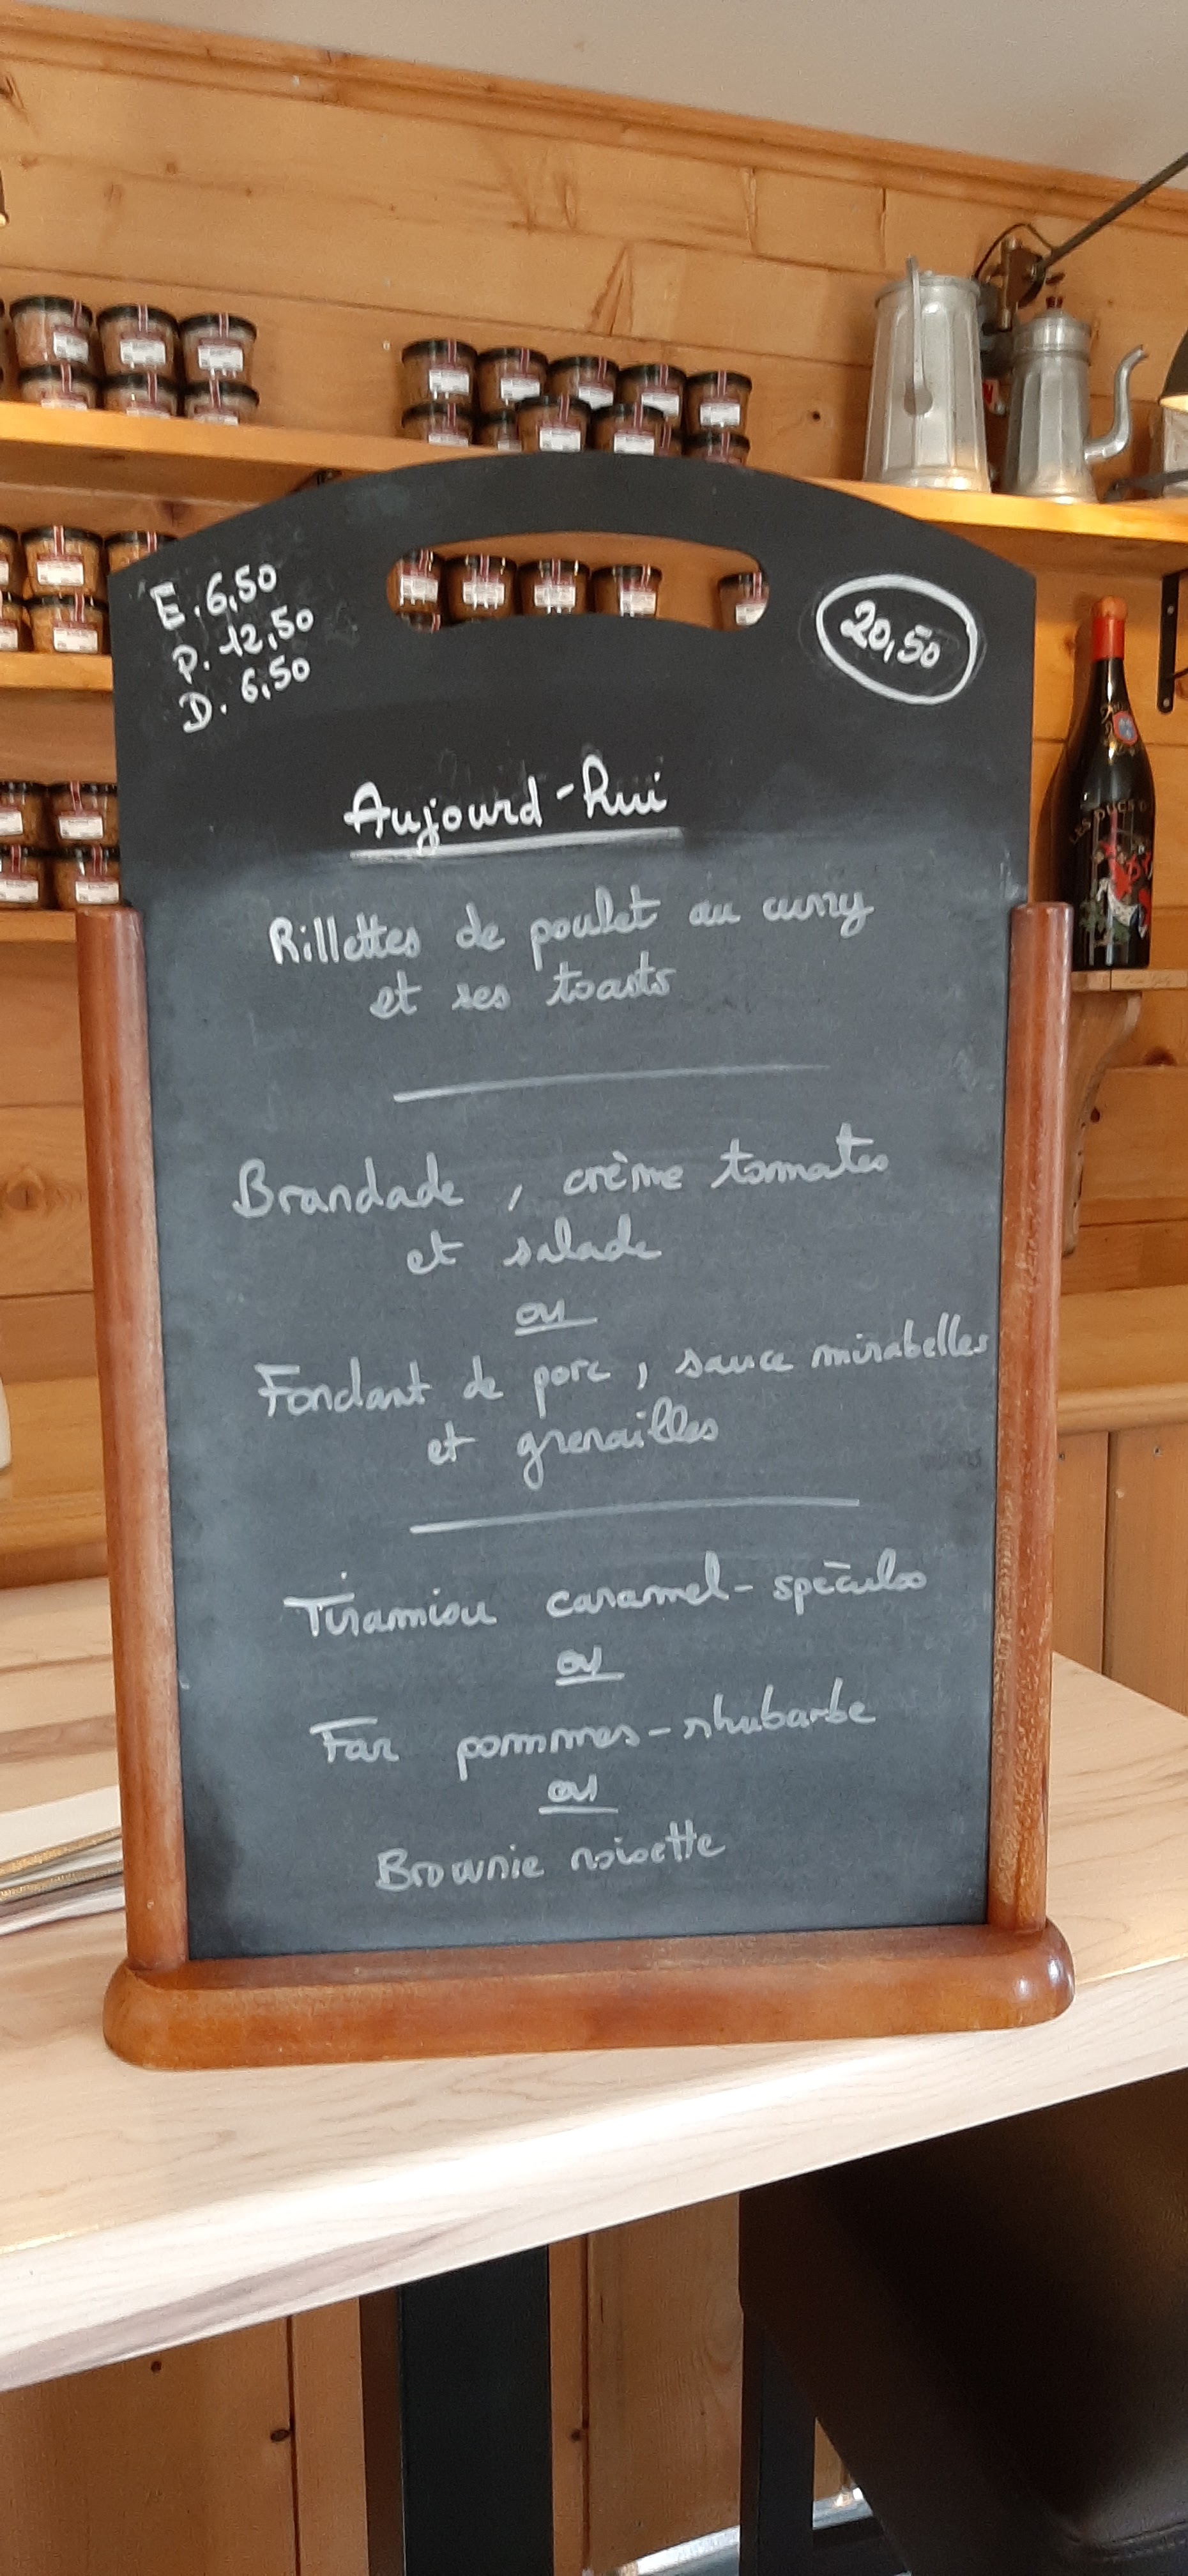 E. 6,50
P. 12,50
D. 6,50
20,50
Aujourd-hui
Rillettes de poulet au curry
et ses toasts
Brandade, crème tomates
et salade
ou
Fondant de porc, sauce mirabelles
et grenailles
Tiramisu caramel-spéculo
ou
Far pommes-rhubarbe
ou
Brownie noisette
LES DUCS